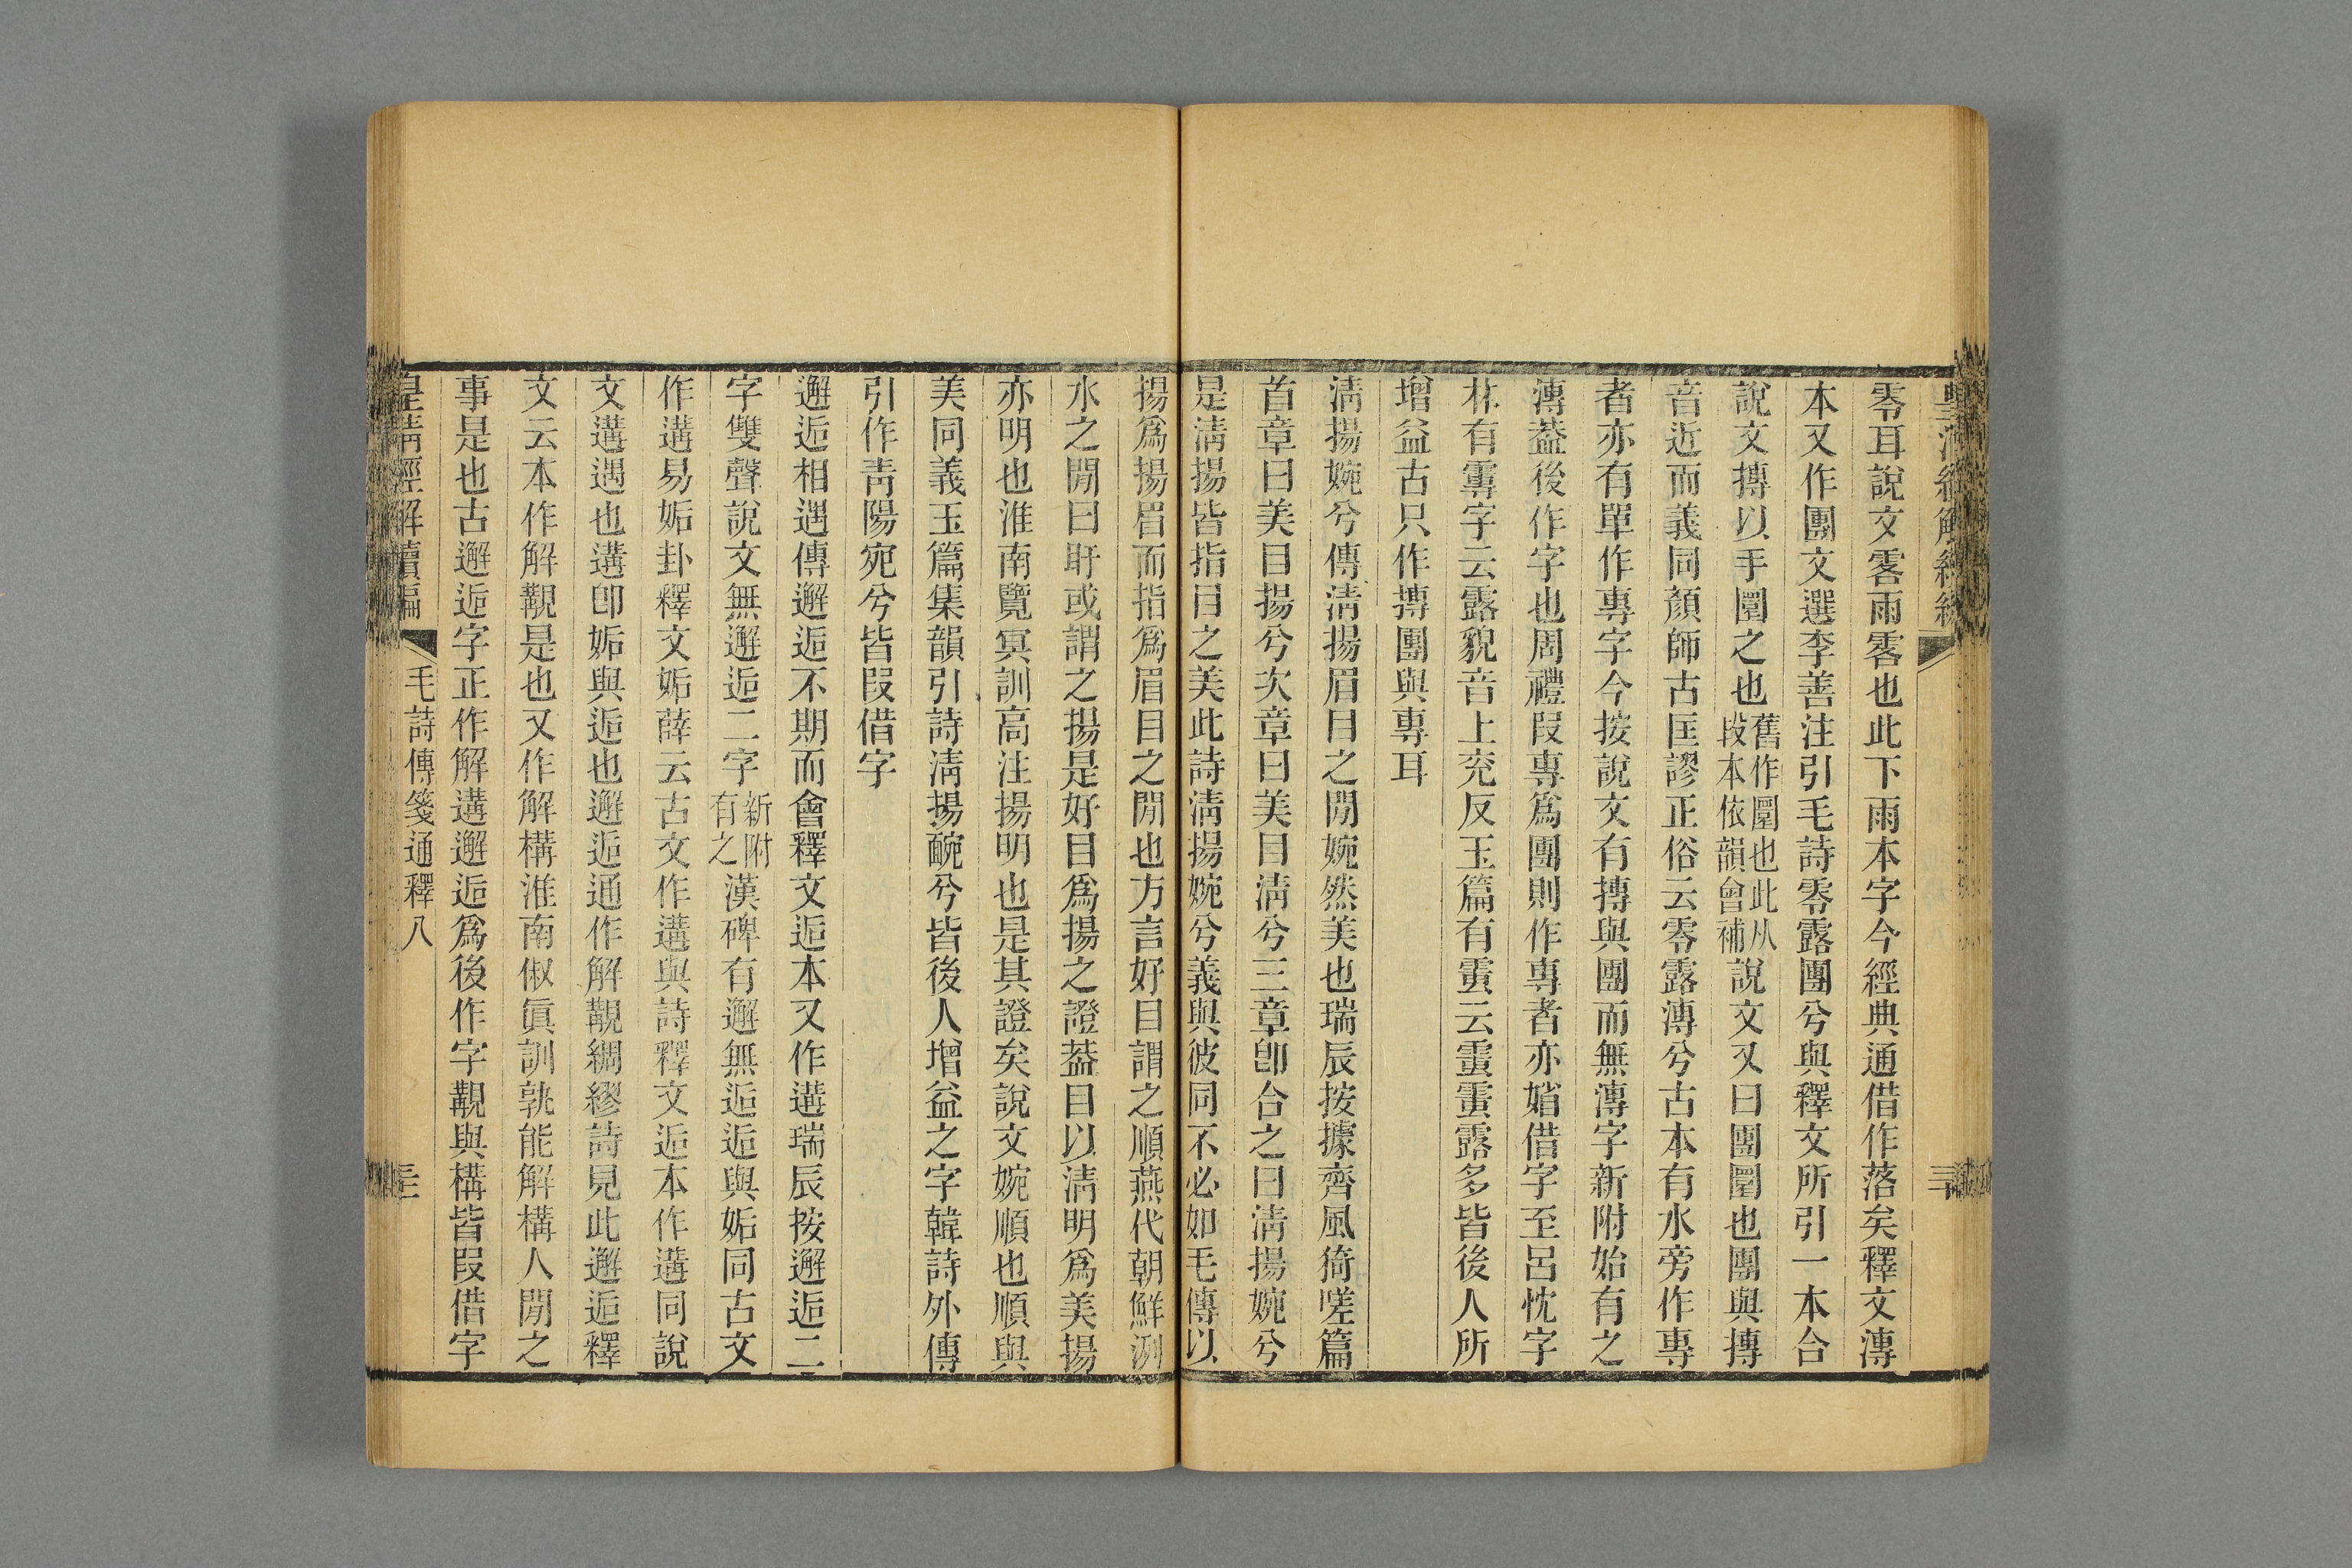 零耳說文霝雨零也此下雨本字今經典通借作落矣釋文漙
本又作團文選李善注引毛詩零露團兮與釋文所引一本合
說文摶以手圜之也舊作圜也此从段本依韻會補說文又曰團圜也團與摶
音近而義同顏師古匡謬正俗云零露漙兮古本有水旁作專
者亦有單作專字今按說文有摶與團而無漙字新附始有之
漙葢後作字也周禮叚專爲團則作專者亦媘借字至呂忱字
林有䨬字云露貌音上兖反玉篇有䨬云䨬䨬露多皆後人所
增益古只作摶團與專耳
淸揚婉兮傳淸揚眉目之閒婉然美也瑞辰按據齊風猗嗟篇
首章曰美目揚兮次章曰美目淸兮三章卽合之曰淸揚婉兮
是淸揚皆指目之美此詩淸揚婉兮義與彼同不必如毛傳以
揚爲揚眉而指爲眉目之閒也方言好目謂之順燕代朝鮮洌
水之閒曰盱或謂之揚是好目爲揚之證葢目以淸明爲美揚
亦明也淮南覽冥訓高注揚明也是其證矣說文婉順也順與
美同義玉篇集韻引詩淸揚䩊兮皆後人增益之字韓詩外傳
引作靑陽宛兮皆叚借字
邂逅相遇傳邂逅不期而會釋文逅本又作遘瑞辰按邂逅二
字雙聲說文無邂逅二字新附有之漢碑有邂無逅逅與姤同古文
作遘易姤卦釋文姤薛云古文作遘與詩釋文逅本作遘同說
文遘遇也遘卽姤與逅也邂逅通作解覯綢繆詩見此邂逅釋
文云本作解覯是也又作解構淮南俶眞訓孰能解構人閒之
事是也古邂逅字正作解遘邂逅爲後作字覯與構皆叚借字
皇淸經解續編
毛詩傳箋通釋八